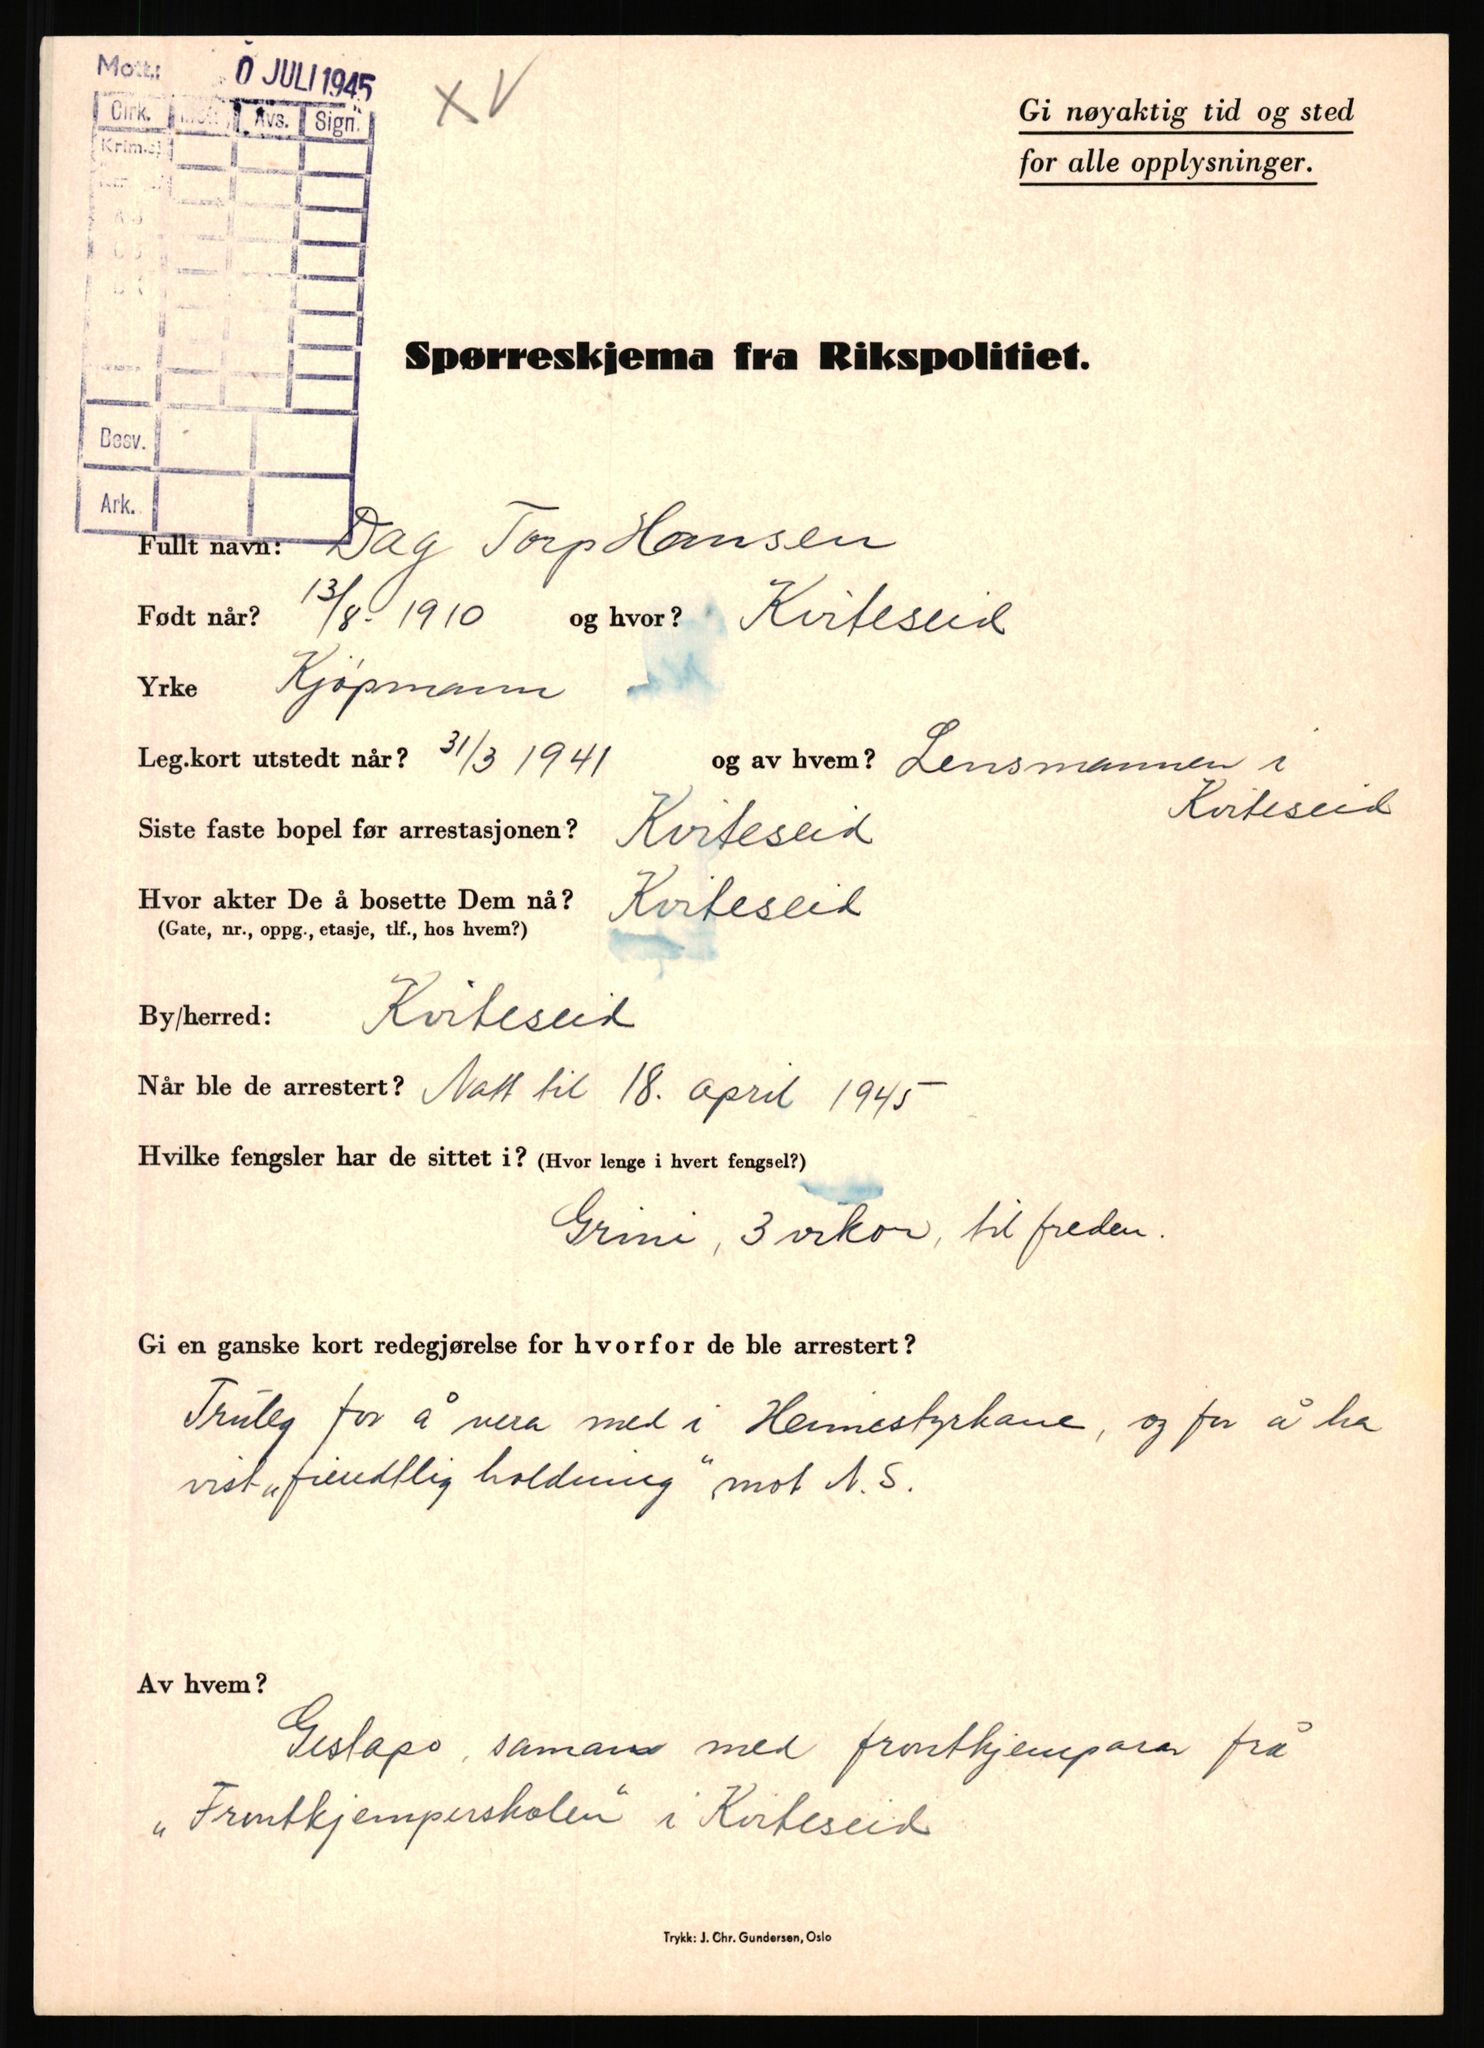 Mott.: 0 JULI 1945
Cirk. Mott. Avs. Sign.
Krim.
Desv.
Ark.
XV
Gi nøyaktig tid og sted
for alle opplysninger.
Spørreskjema fra Rikspolitiet.
Fullt navn: Dag Torp Hansen
Født når? 13/8. 1910 og hvor? Kviteseid
Yrke Kjøpmann
Leg.kort utstedt når? 31/3 1941 og av hvem? Lensmannen i
Kviteseid
Siste faste bopel før arrestasjonen? Kviteseid
Hvor akter De å bosette Dem nå? Kviteseid
(Gate, nr., oppg., etasje, tlf., hos hvem?)
By/herred: Kviteseid
Når ble de arrestert? Natt til 18. april 1945
Hvilke fengsler har de sittet i? (Hvor lenge i hvert fengsel?)
Grini, 3 vekor, til freden.
Gi en ganske kort redegjørelse for hvorfor de ble arrestert?
Truleg for å vera med i Heimestyrkane, og for å ha
vist „fiendtlig holdning" mot N.S.
Av hvem?
Gestapo, saman med frontkjemparar frå
„Frontkjemperskolen" i Kviteseid
Trykk: J. Chr. Gundersen, Oslo